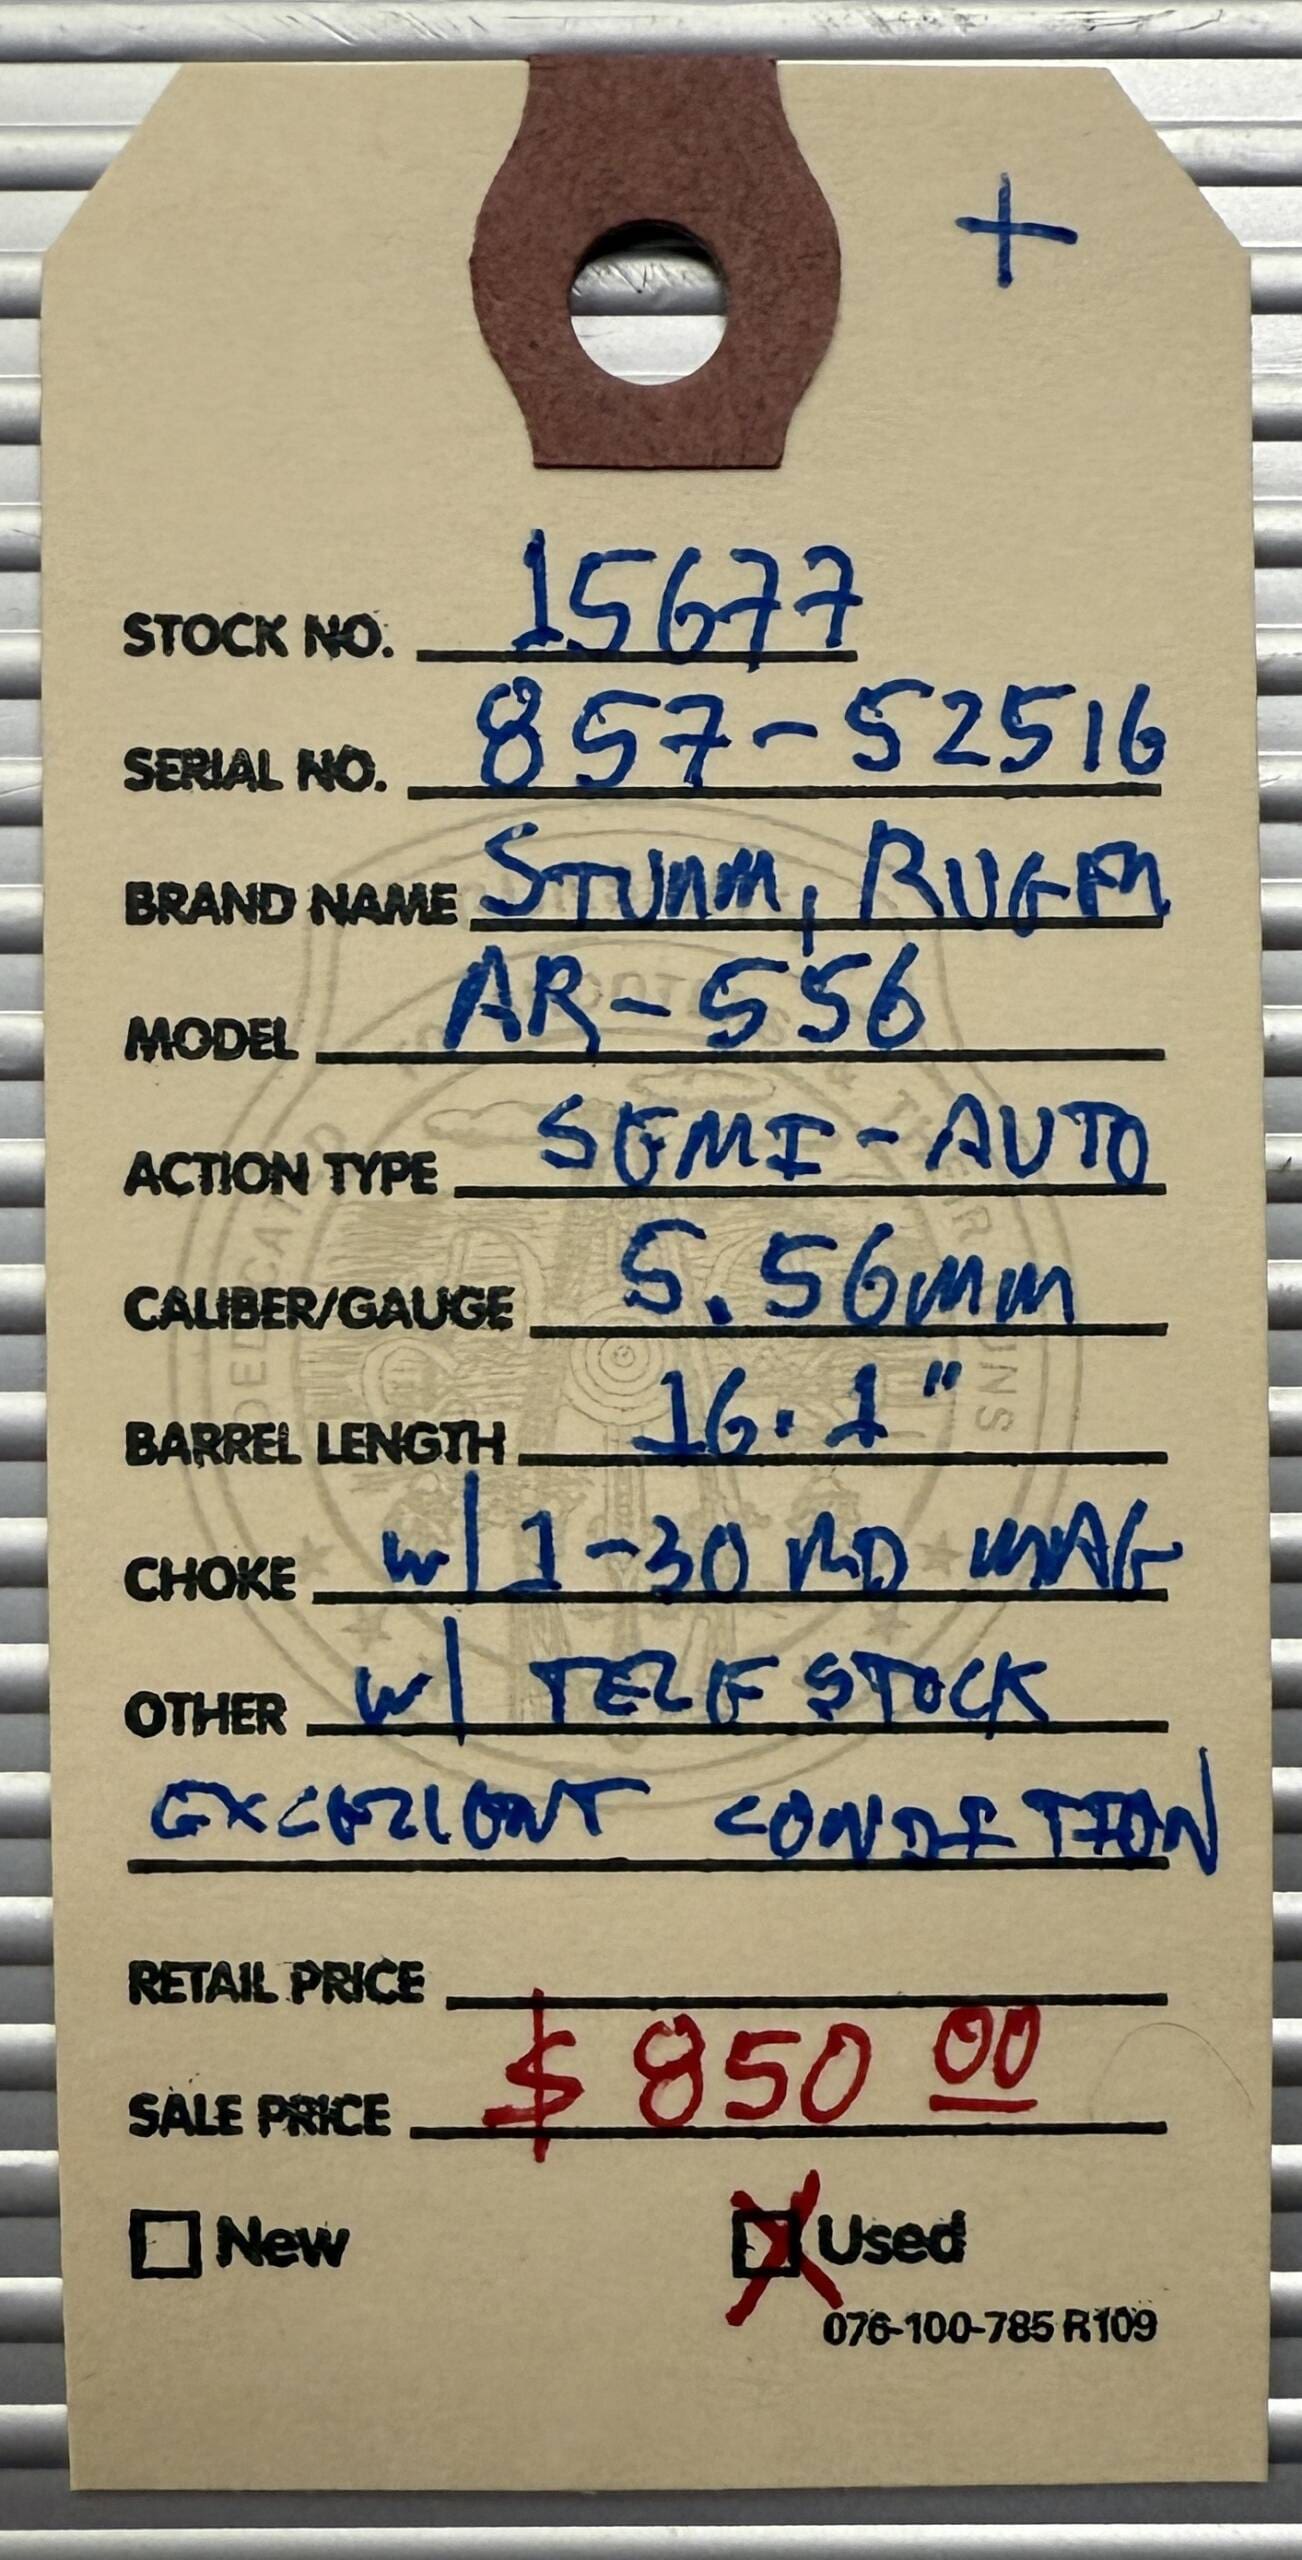 +
STOCK NO. 15677
SERIAL NO. 857-52516
BRAND NAME STURM, RUGER
MODEL AR-556
ACTION TYPE SEMI-AUTO
CALIBER/GAUGE 5.56mm
BARREL LENGTH 16.1"
CHOKE w/ 1-30 RD MAG
OTHER w/ TELE STOCK
EXCELLENT CONDITION
RETAIL PRICE
SALE PRICE $850 00
New Used
076-100-785 R109